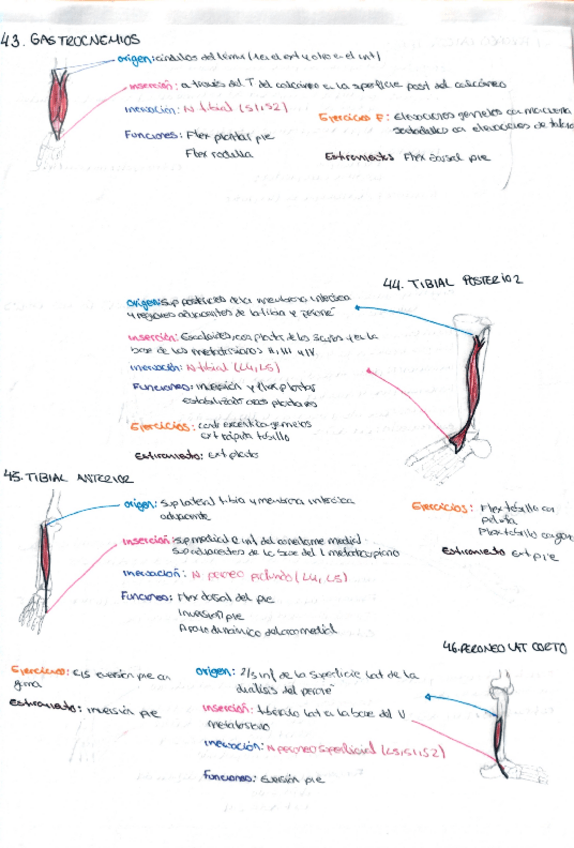 43. GASTROCNEMIOS
origen: cóndulos del fémur (1 en el ext y otro en el int)
inserción: a través del T del calcáneo en la superficie post del calcáneo
inervación: N tibial (S1,S2)
Funciones: Flex plantar pie
Flex rodilla
Ejercicios F: Elevaciones gemelos con mancuerna
sentadillas con elevaciones de talón
Estiramiento Flex dorsal pie
44. TIBIAL POSTERIOR
origen: Sup posteriores de la membrana interósea
y regiones adyacentes de la tibia y peroné
inserción: Escafoides, cara plantar de los
base de los metatarsianos II, III y IV
inervación: N tibial (L4, L5)
Funciones: inversión y flex plantar
estabilización arcos plantares
Ejercicios: excéntrica gemelos
ext tobillo
Estiramiento: ext planta
45. TIBIAL ANTERIOR
origen: Sup lateral tibia y membrana interósea
adyacente
inserción: sup medial e inf del cuneiforme medial.
Sup adyacentes de la base del I metatarsiano
inervación: N peroneo profundo (L4, L5)
Funciones: Flex dorsal del pie
Inversión pie
Apoyo dinámico del arco medial
Ejercicios: Flex tobillo con
pelota
Flex tobillo con goma
Estiramiento Ext pie
46. PERONEO LAT CORTO
origen: 2/3 inf de la superficie lat de la
diáfisis del peroné
inserción: tubérculo lat en la base del V
metatarsiano
inervación: N peroneo superficial (L5, S1, S2)
Funciones: Eversión pie
Ejercicios: Ejs eversión pie con
goma
Estiramiento: inversión pie